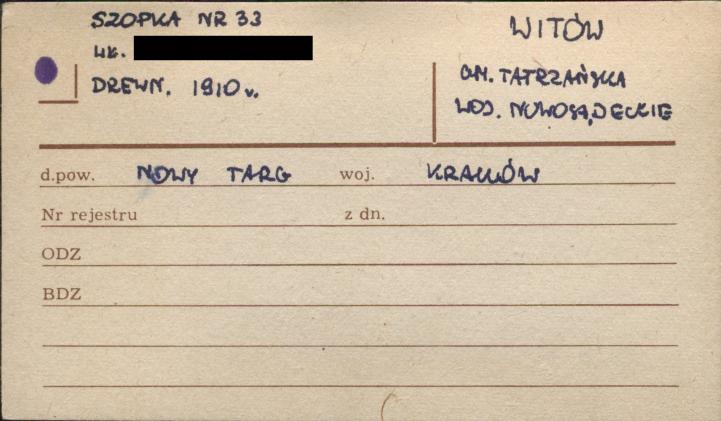 SZOPKA NR 33
WŁ.
DREWN. 1910 r.
WITÓW
GM. TATRZAŃSKA
WOJ. NOWOSĄDECKIE
d.pow. NOWY TARG woj. KRAKÓW
Nr rejestru z dn.
ODZ
BDZ